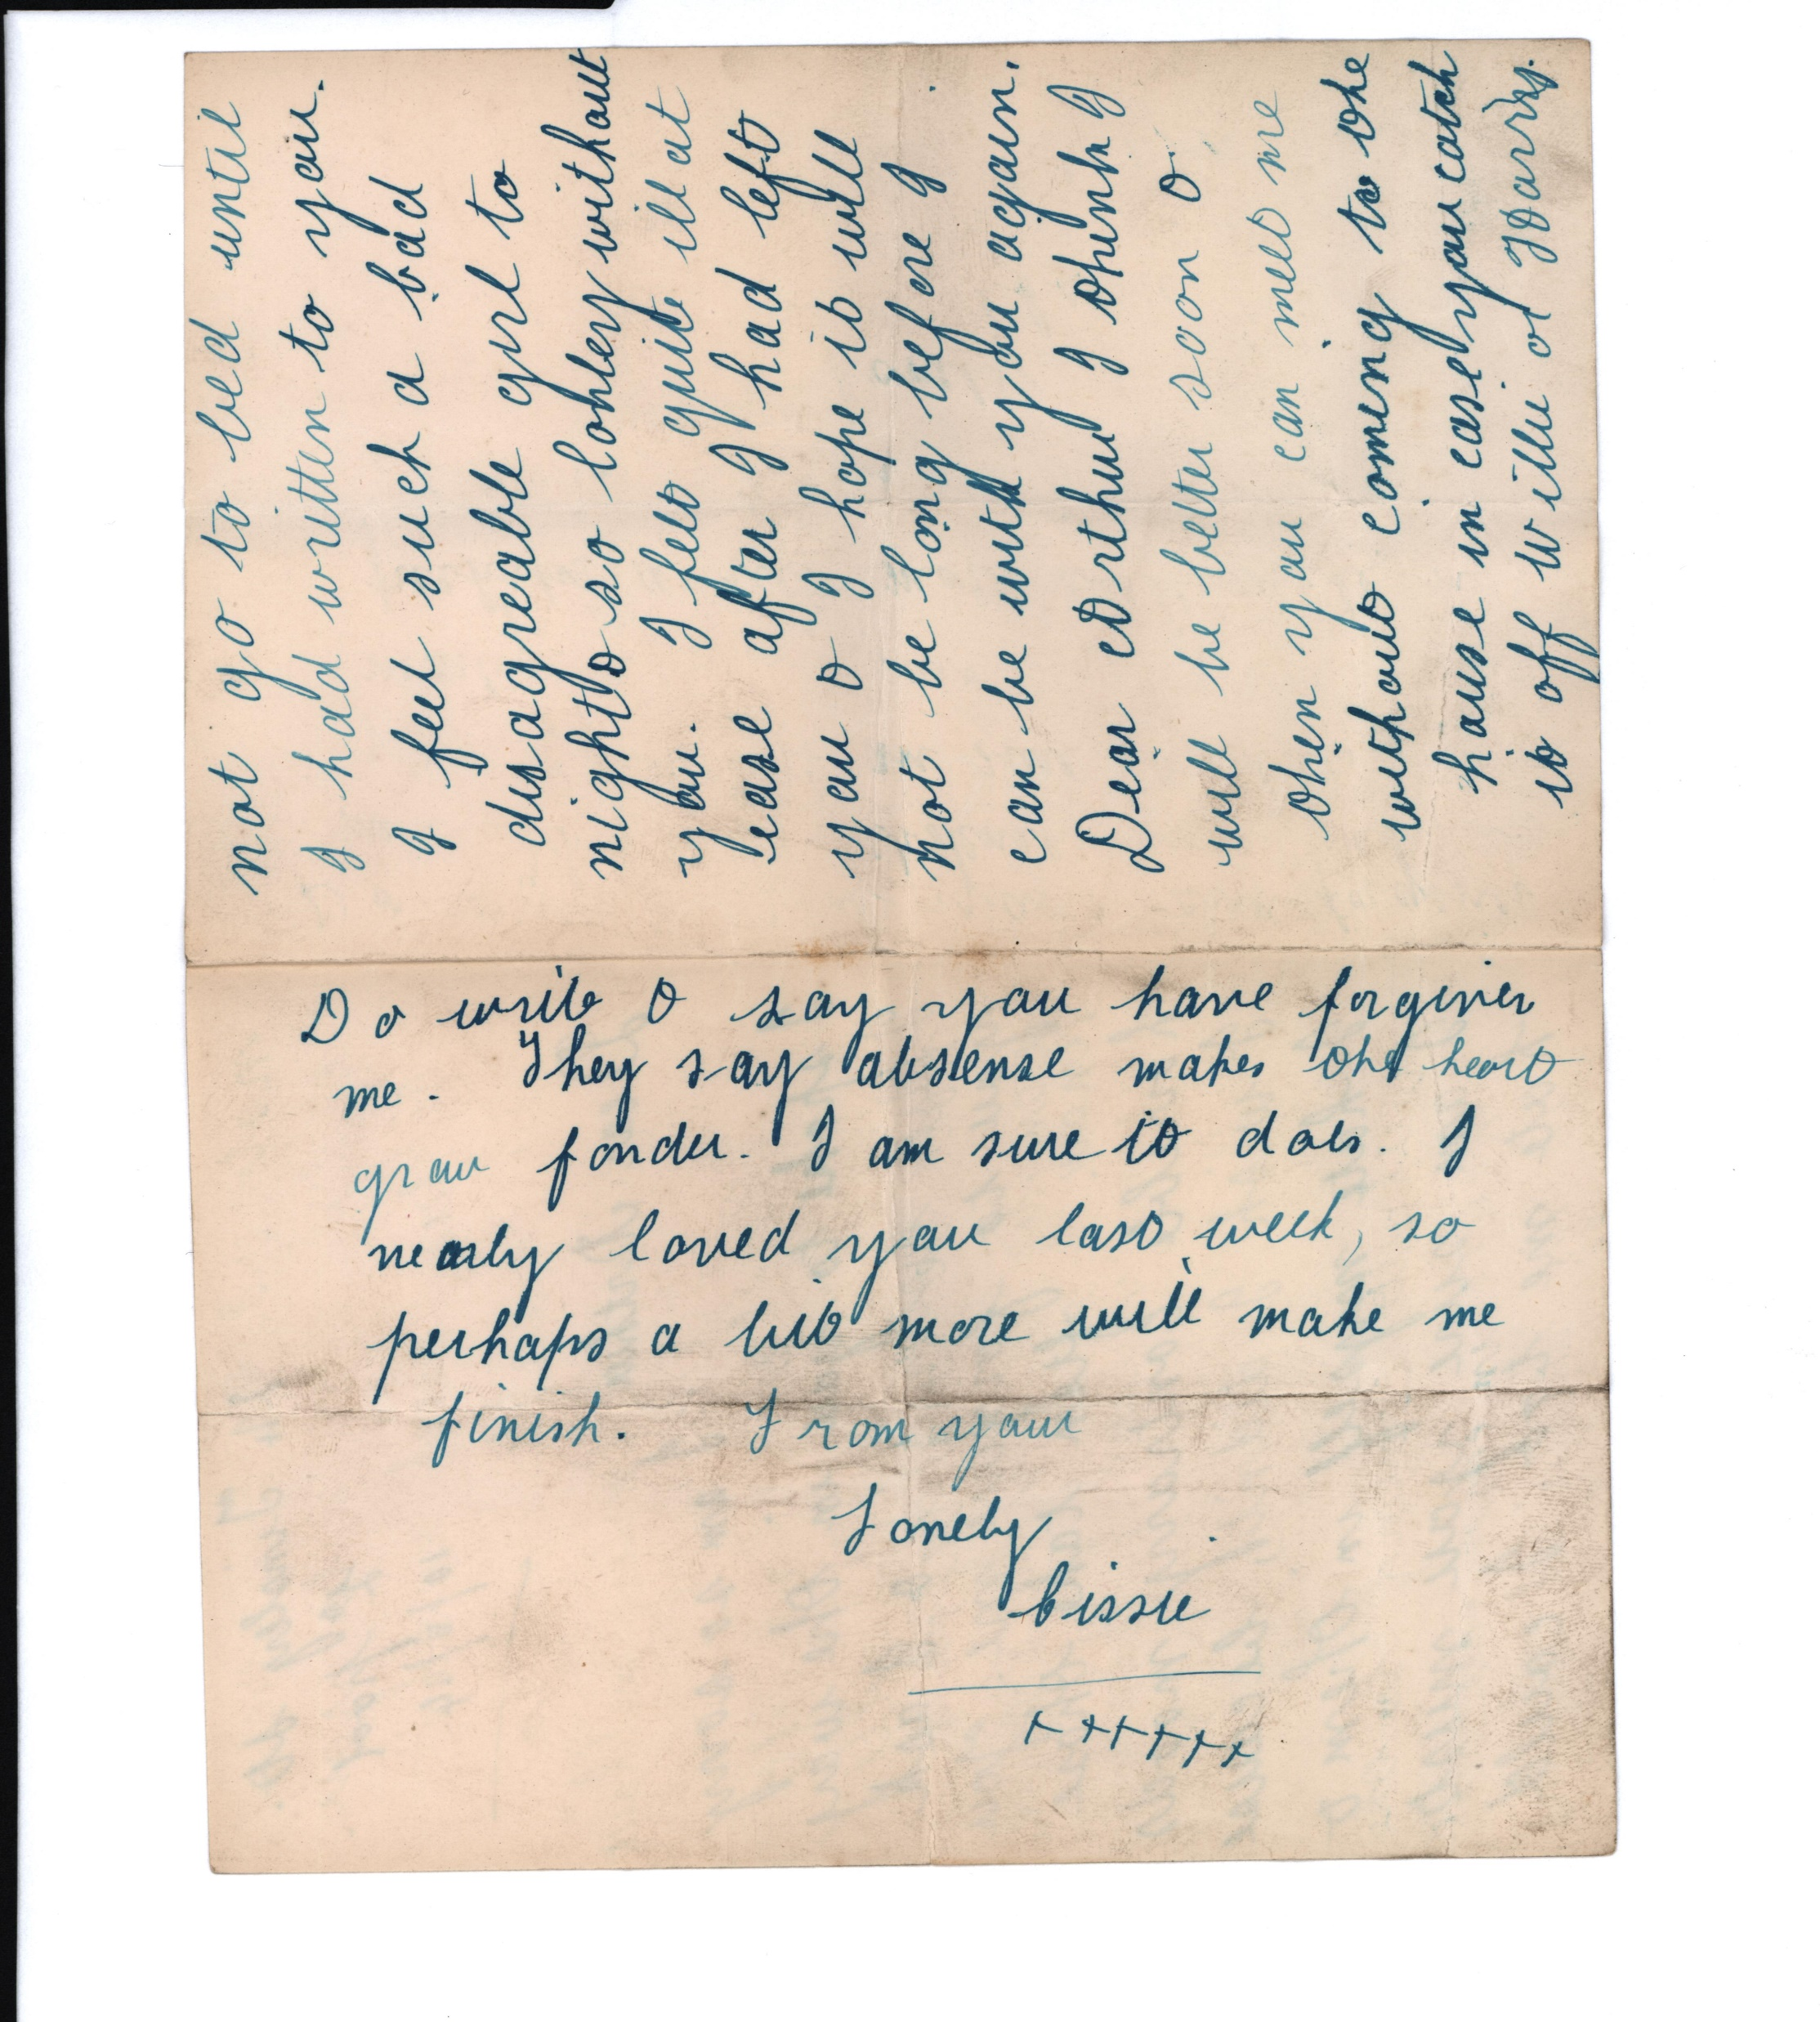 not go to bed until
I had written to you.
I feel such a bad
disagreable girl to
night & so lonley without
you. I felt quite ill at
ease after I had left
you & I hope it will
not be long before I
can be with you again.
Dear Arthur I think I
will be better soon &
then you can meet me
without coming to the
house in case you catch
it off Willie or Harry.
Do write & say you have forgiven
me. They say absense makes the heart
grow fonder. I am sure it does. I
nearly loved you last week, so
perhaps a bit more will make me
finish. From your
Lonely
Cissie
x x x x x x